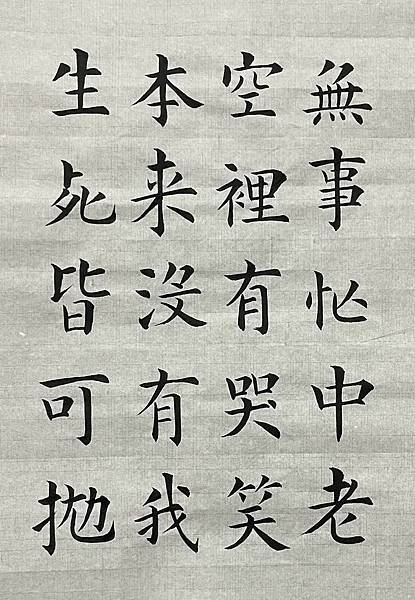 無事忙中老
空裡有哭笑
本来沒有我
生死皆可拋